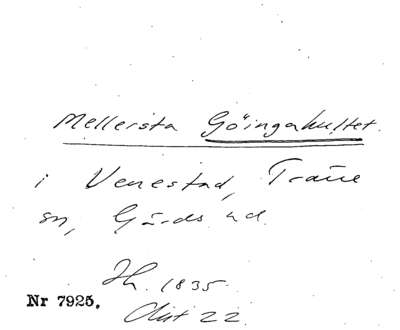 Mellersta Göingakultet.
i Venestad, Träne
sn, Gärds hd.
1835.
Nr 7925.
22.